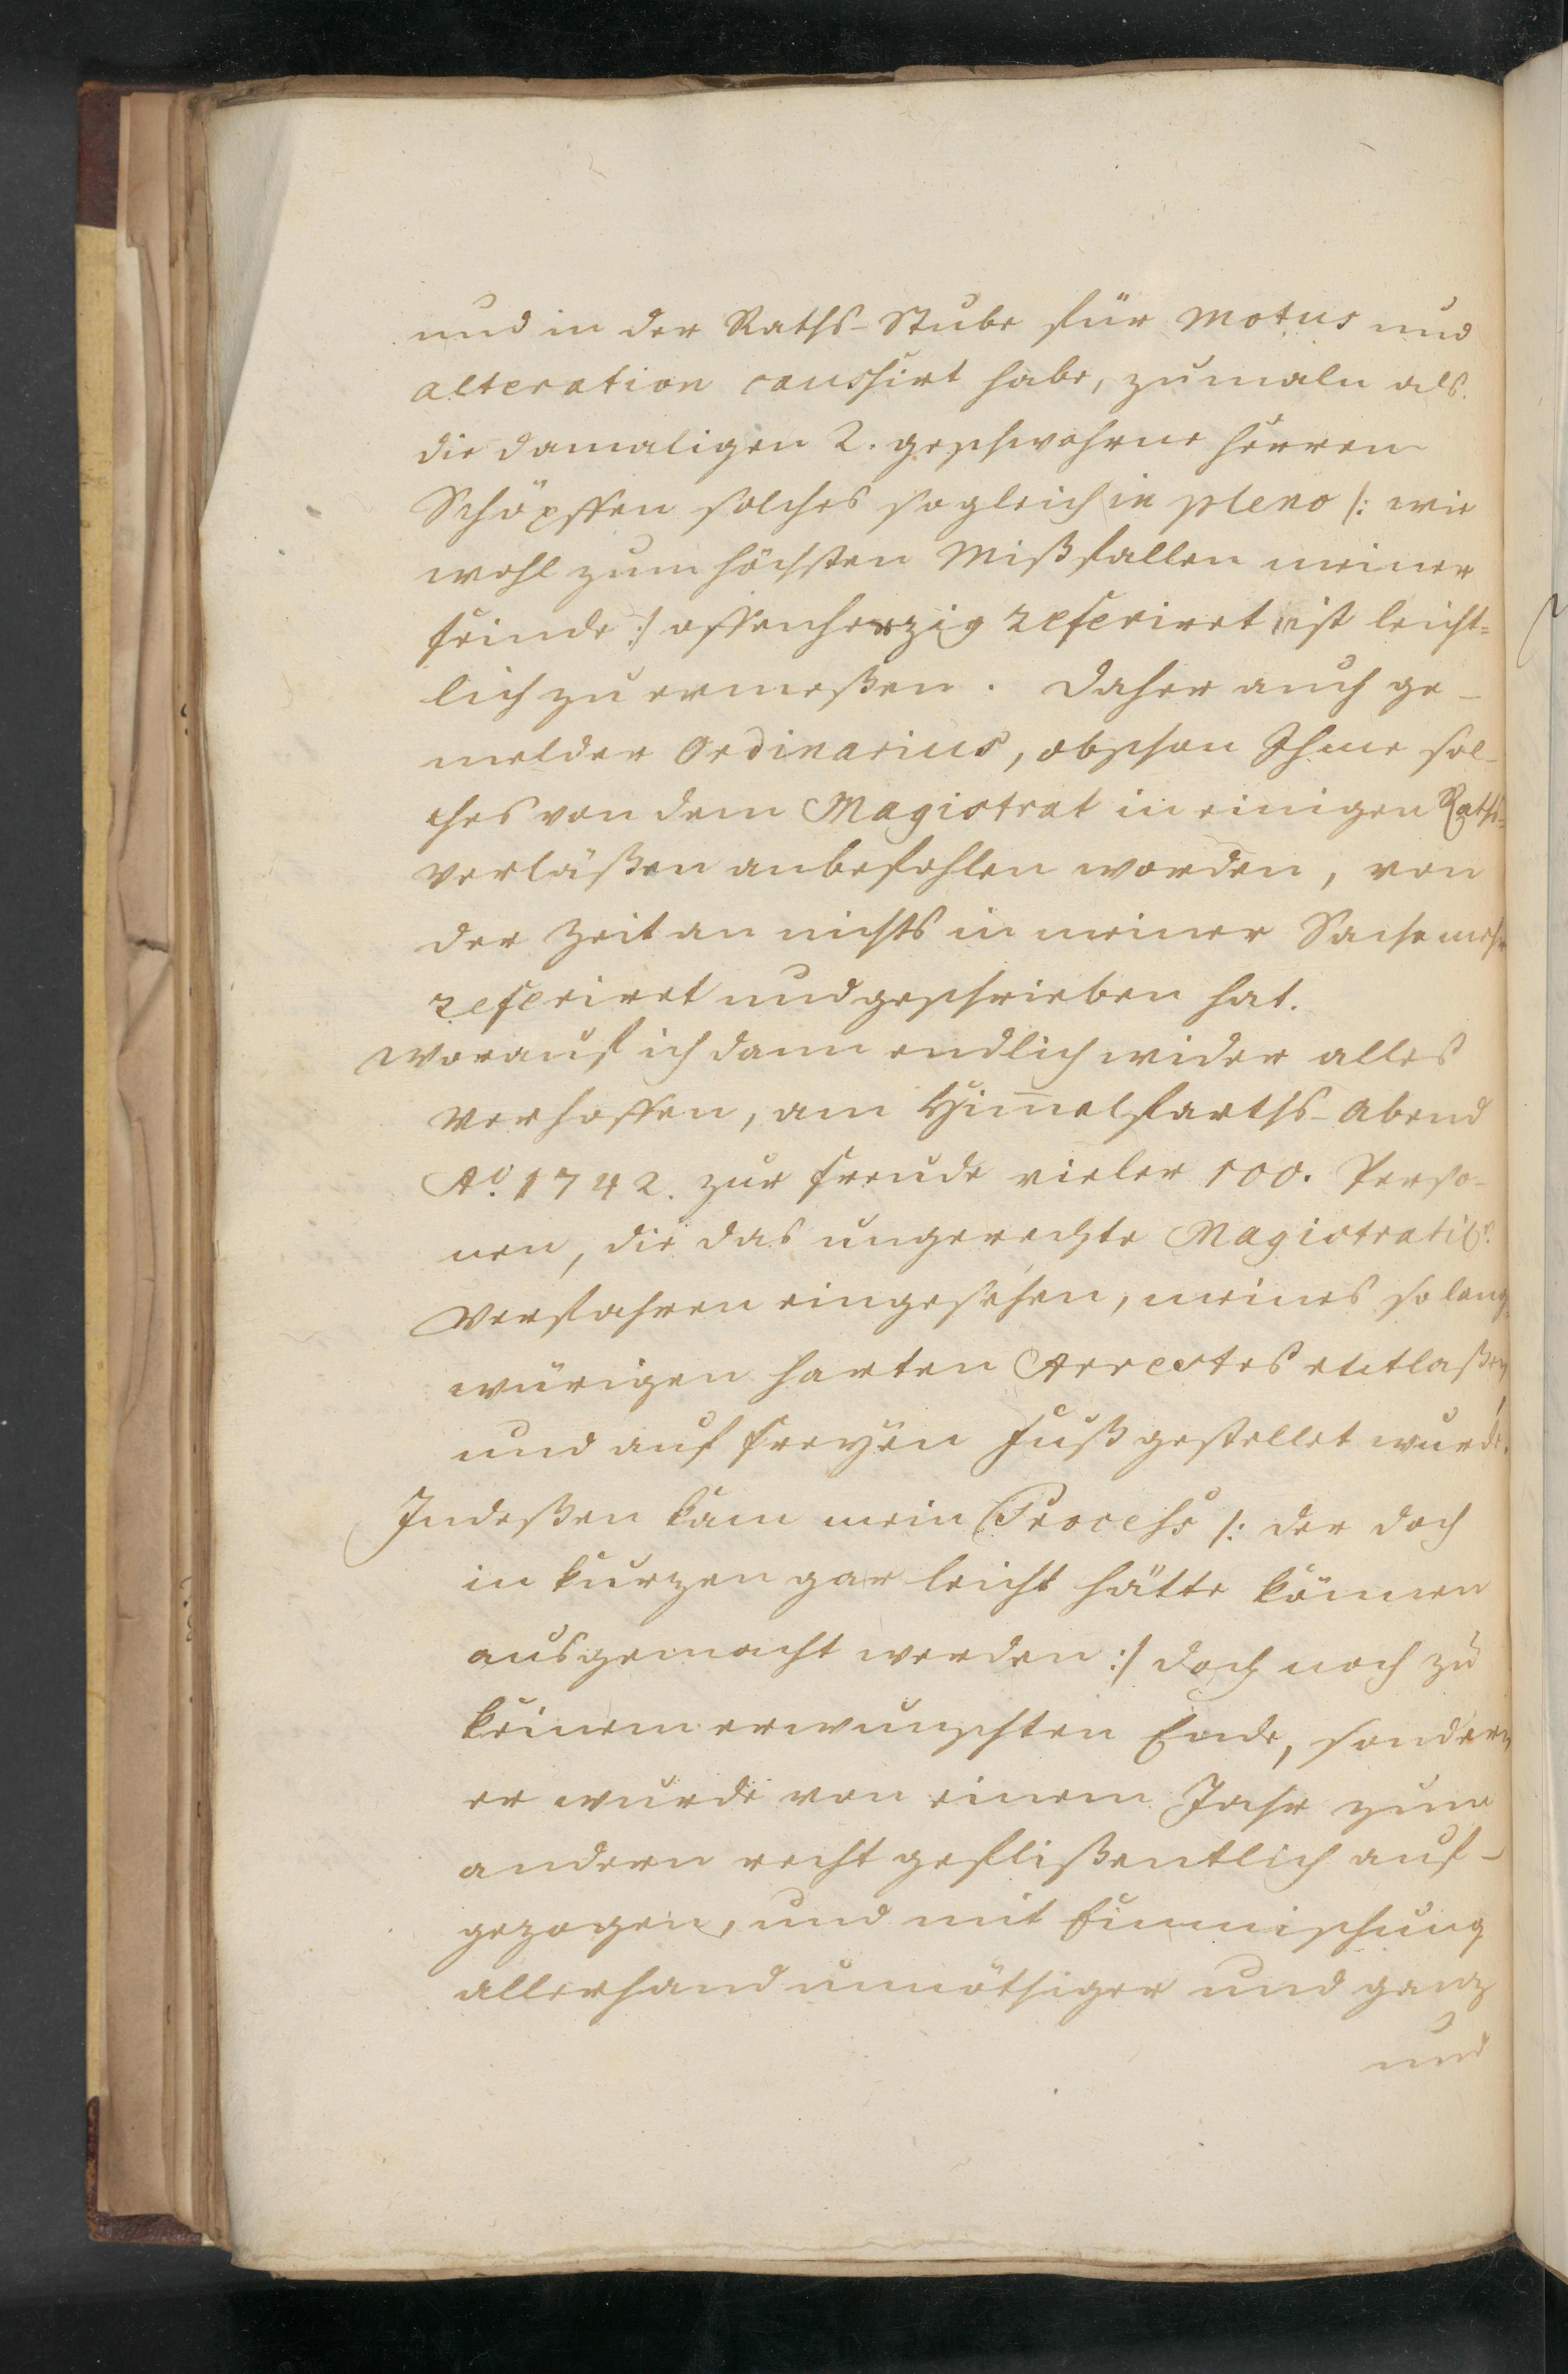 und in der Raths-Stube für Motus und
alteration caussirt habe, zumaln als
die damaligen 2. geschwohrne Herren
Schöpffen solches sogleich in pleno /: wie
wohl zum höchsten Mißfallen meiner
feinde :/ offenherzig referiret, ist leicht-
lich zu ermeßen. Daher auch ge-
melder Ordinarius, obschon Ihme sol-
ches von dem Magistrat in einigen Raths-
verläßen anbefohlen worden, von
der Zeit an nichts in meiner Sache mehr
referiret und geschrieben hat.
Worauf ich dann endlich wider alles
Verhoffen, am Himmelfarths-Abend
Ao. 1742. zur freude vieler 100. Perso-
nen, die das ungerechte Magistratis.
Verfahren eingesehen, meines so lang-
würigen harten Arrestes entlaßen
und auf freyen Fuß gestellet wurde.
Indeßen kam mein Process /: der doch
in kurzen gar leicht hätte können
ausgemacht werden :/ doch noch zu
keinem erwunschten Ende, sondern
er wurde von einem Jahr zum
andern recht geflißentlich auf-
gezogen, und mit Einmischung
allerhand unnöthiger und ganz
und